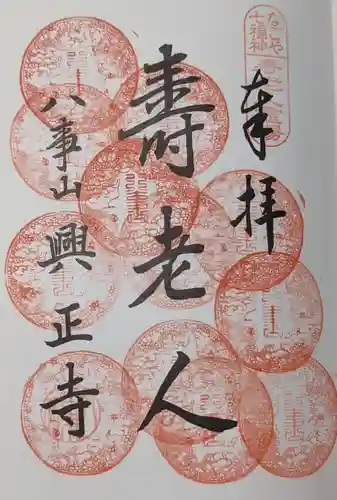 奉拝
なごや
七福神
壽老人
八事山興正寺